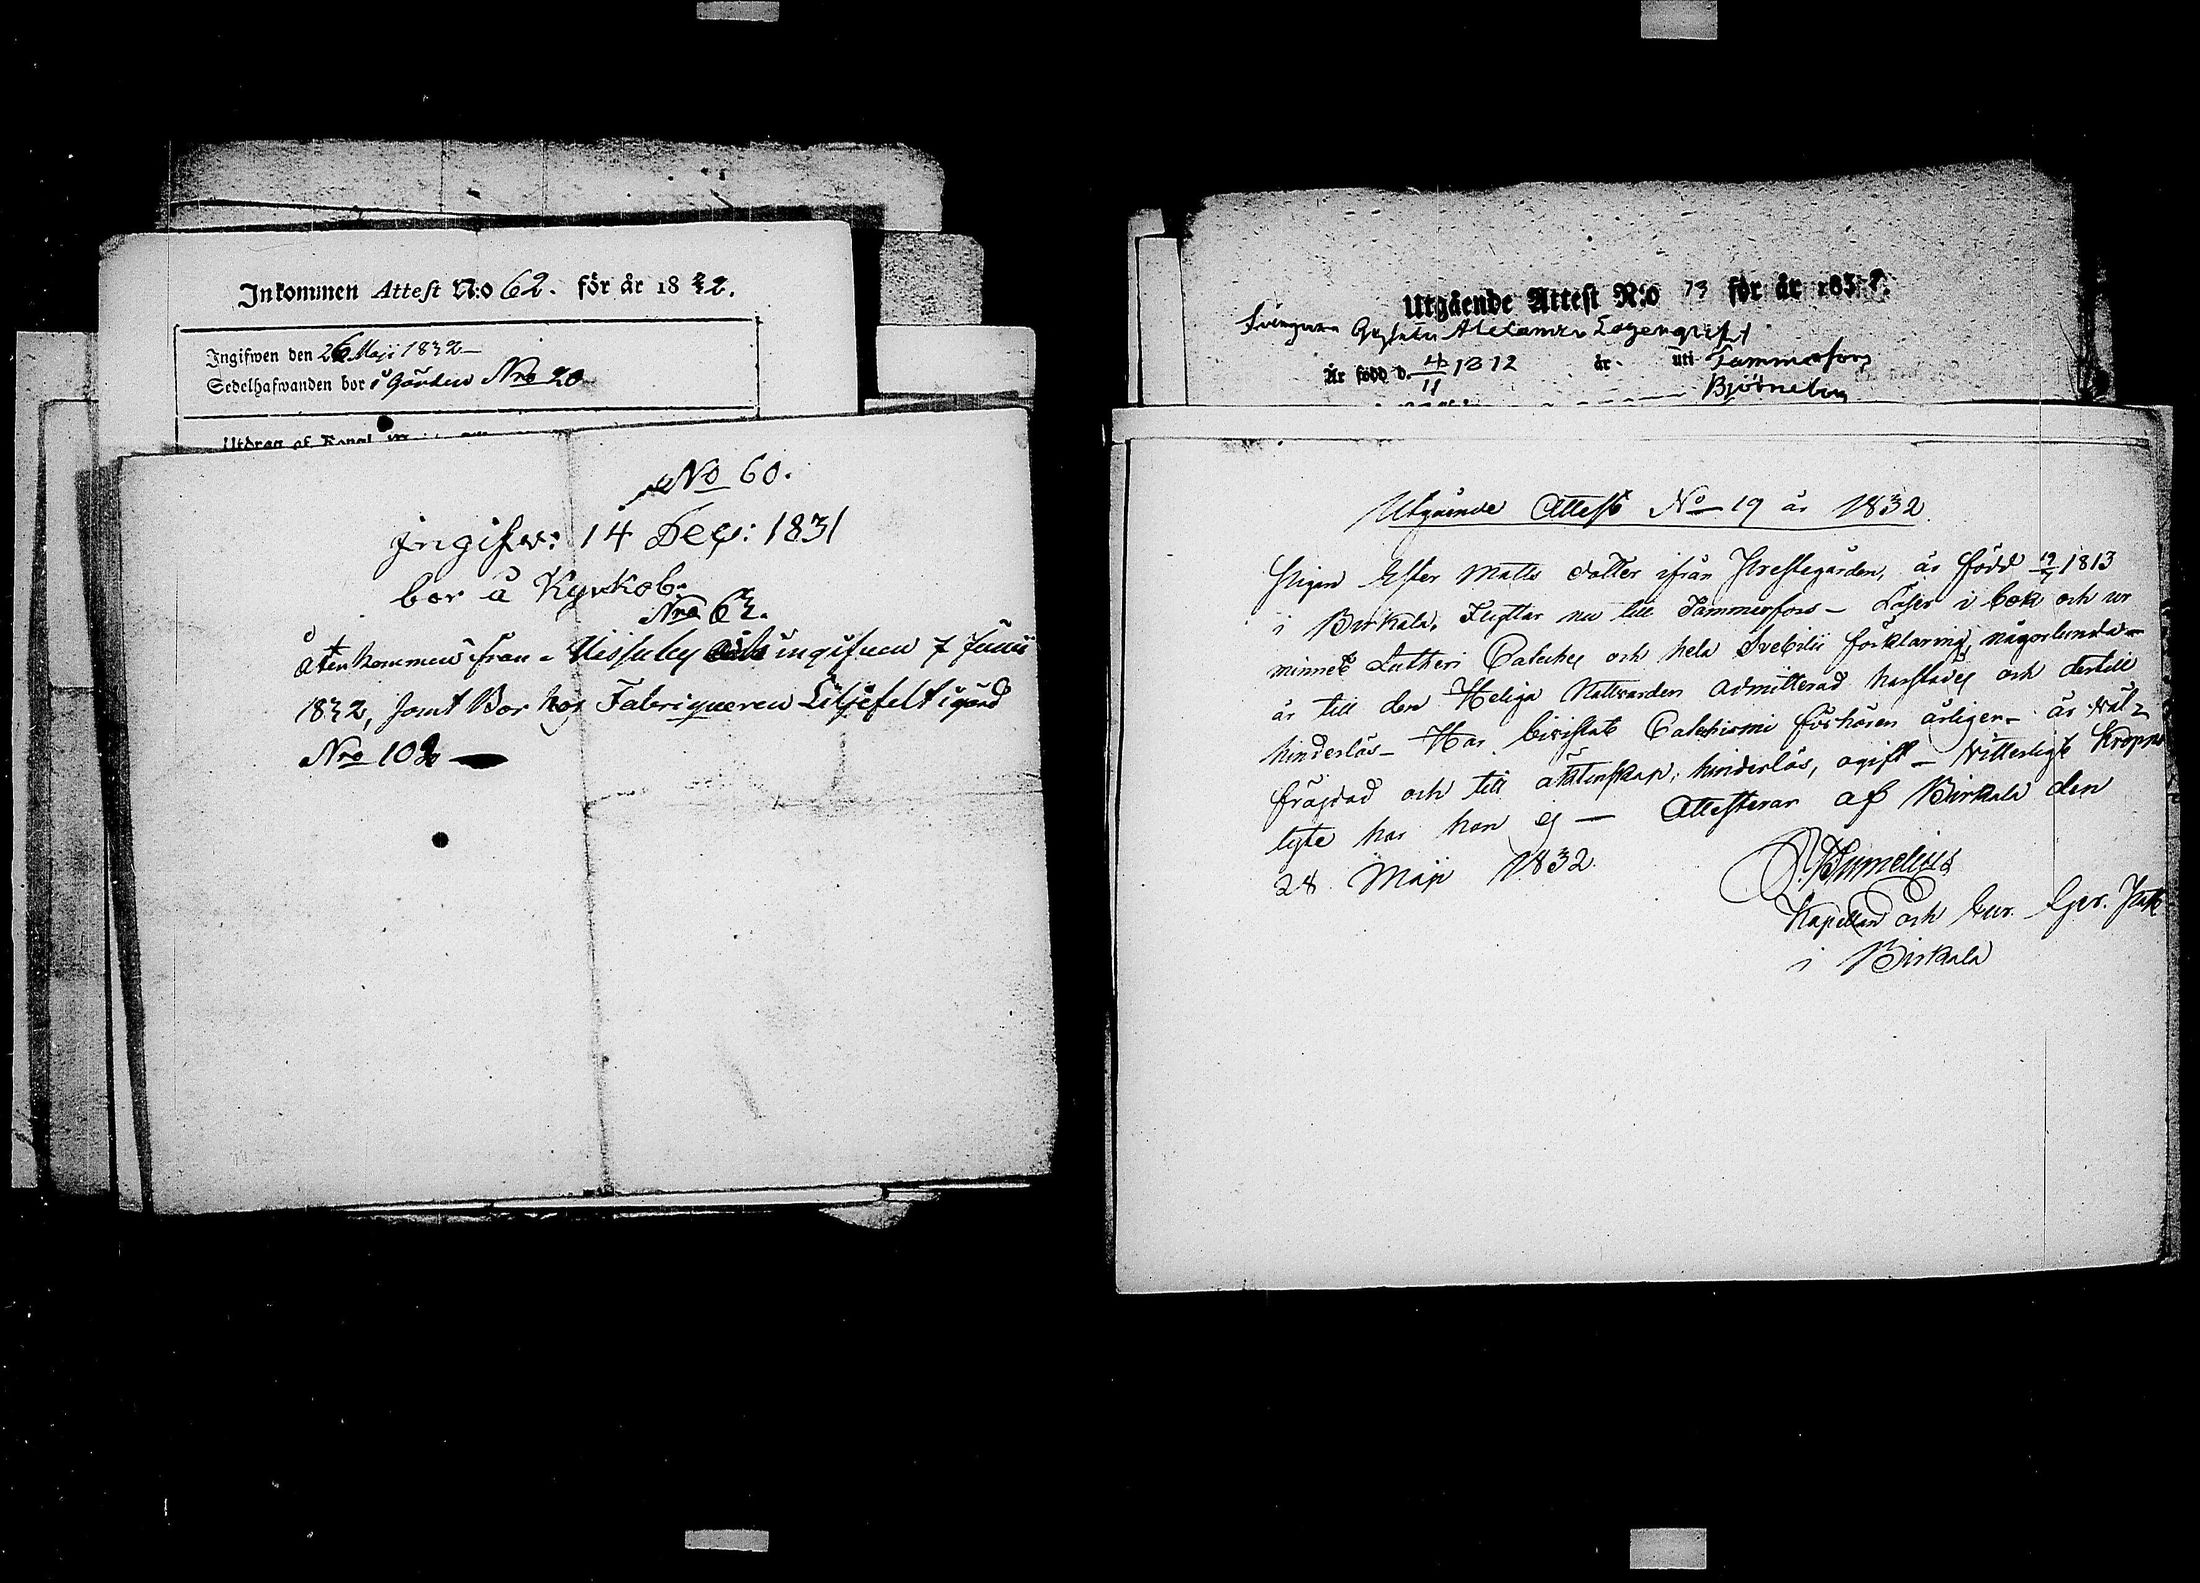 Inkommen Attest N:o 62. för år 1832.
Ingifwen den 26 Maji 1832
Sedelhafwanden bor i Gården Nro 20
No 60.
Ingifw: 14 Dec: 1831
bor å Kyrkob:
Nro 62.
Återkommen ifrån Messuby ingifven 7 Junii
1832, samt Bor hos Fabriqueren Liljefelt i gård
Nro 10
Utgående Attest N:o 73 för år 183
Alexander Lagerqvist
Är född d. 4/11 1812 år. uti Tammerfors
Björneborg
Utgående Attest No 19 år 1832
Pigan Ester Matts dotter ifrån Prestegården, är född 19/7 1813
i Birkala, Flyttar nu till Tammerfors – Läser i bok och ur
minnet Lutheri Catechес och hela Svebilii förklaring, någorlunda –
är till den Heliga Nattvarden admitterad harstädes och dertill
hinderlös – Har bivistat Catechismi förhören årligen – är väl=
frägdad och till äktenskap, hinderlös, ogift – Vitterligt kropps
lyte har hon ej – Attesterar af Birkala den
28 Maji 1832.
Kapellan och
i Birkala